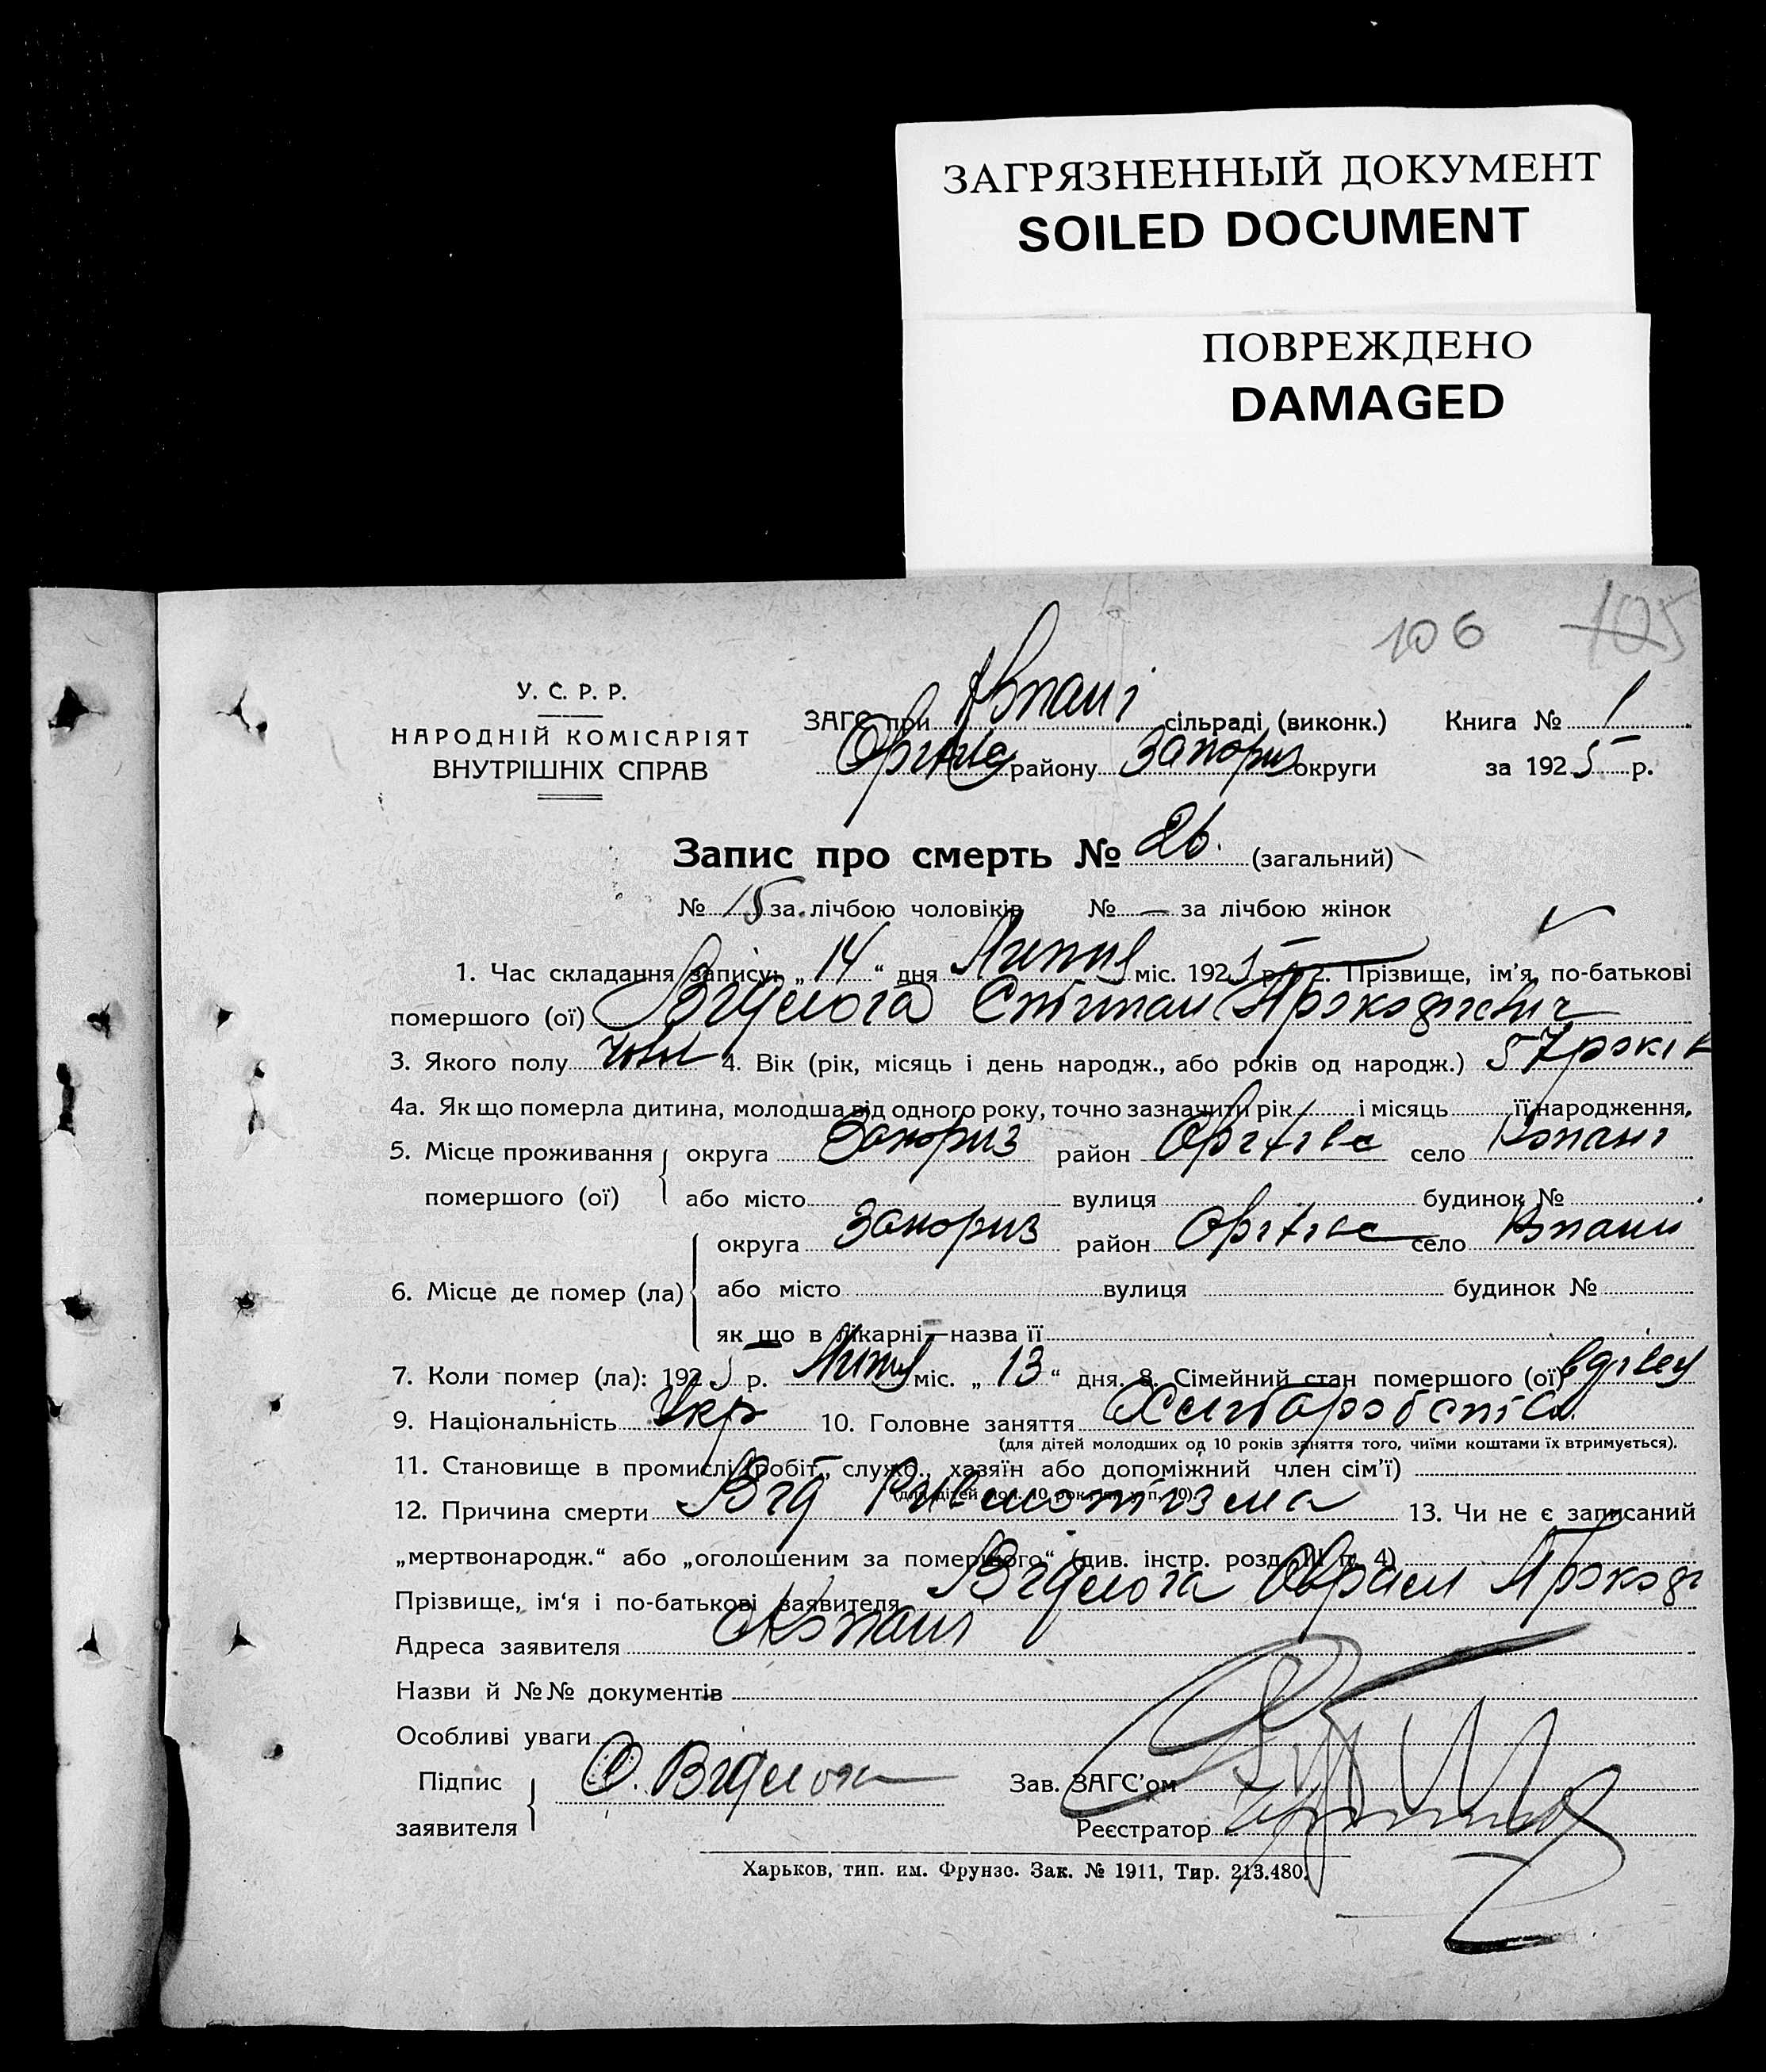 ЗАГРЯЗНЕННЫЙ ДОКУМЕНТ
SOILED DOCUMENT
ПОВРЕЖДЕНО
DAMAGED
106 105
У. С. Р. Р.
НАРОДНІЙ КОМІСАРІЯТ
ВНУТРІШНІХ СПРАВ
ЗАГС при Копані сільраді (виконк.) Книга № 1
району Запориз округи за 1925 р.
Запис про смерть № 26. (загальний)
№ 15 за лічбою чоловіків № — за лічбою жінок
1. Час складання запису: „14“ дня Липня міс. 1925 р. 2. Прізвище, ім'я, по-батькові
помершого (ої) Прокофієвич
3. Якого полу чол 4. Вік (рік, місяць і день народж., або років од народж.) 57 років
4а. Як що померла дитина, молодша від одного року, точно зазначити рік і місяць її народження.
5. Місце проживання округа Запориз район село Копані
помершого (ої) або місто вулиця будинок №
округа Запориз район село Копани
6. Місце де помер (ла) або місто вулиця будинок №
як що в лікарні—назва її
7. Коли помер (ла): 1925 р. Липня міс. „13“ дня. 8. Сімейний стан помершого (ої)
9. Національність Укр 10. Головне заняття
(для дітей молодших од 10 років заняття того, чиїми коштами їх втримується).
11. Становище в промислі (робіт., служб., хазяїн або допоміжний член сім'ї)
12. Причина смерти Від 13. Чи не є записаний
„мертвонародж.“ або „оголошеним за помершого“ (див. інстр. розд. III п. 4)
Прізвище, ім'я і по-батькові заявителя Прокофі
Адреса заявителя Копани
Назви й №№ документів
Особливі уваги
Підпис Зав. ЗАГС'ом
заявителя Реєстратор
Харьков, тип. им. Фрунзе. Зак. № 1911, Тир. 213.480.